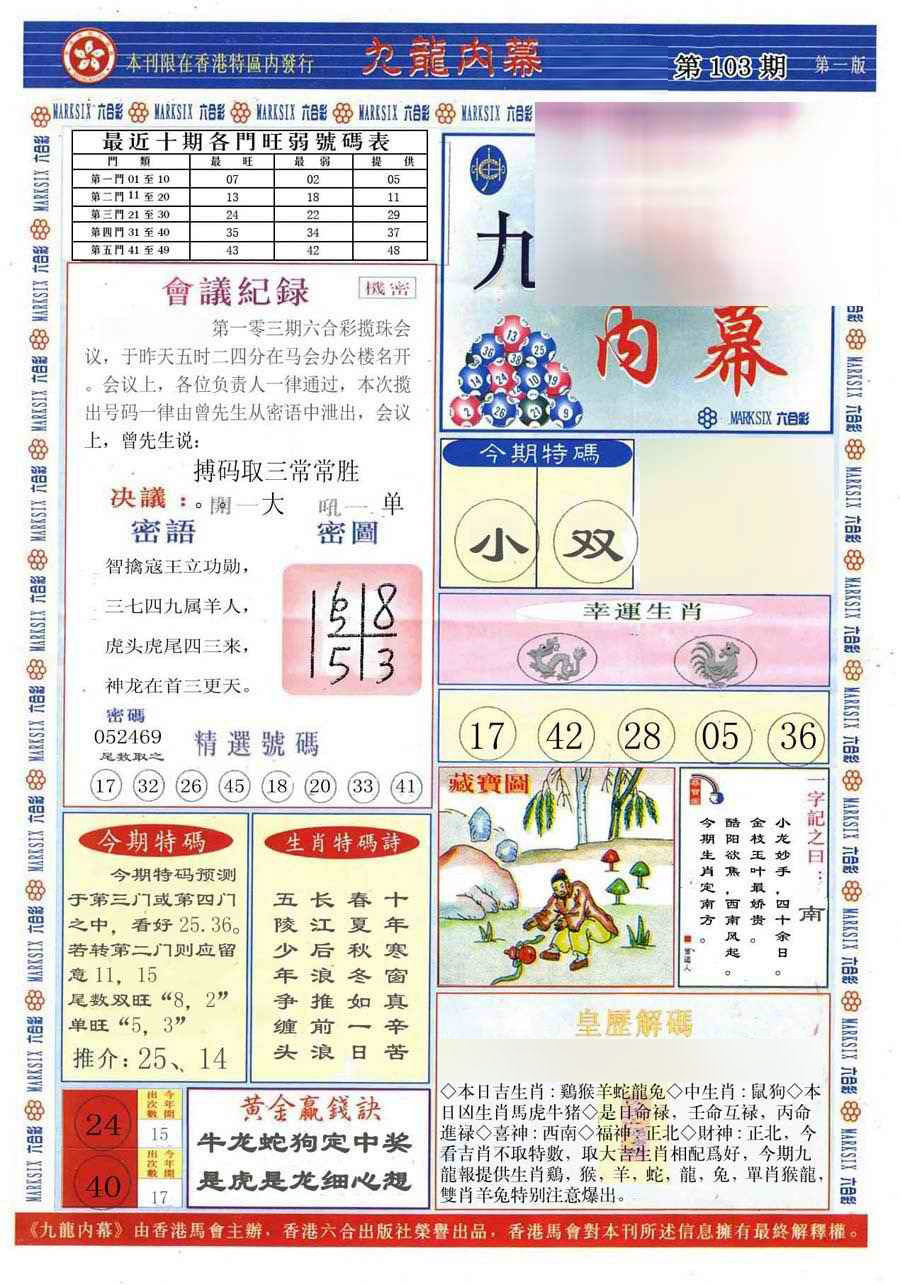 本刊限在香港特區内發行
九龍内幕
第103期
第一版
MARKSIX 六合彩 MARKSIX 六合彩 MARKSIX 六合彩 MARKSIX 六合彩 MARKSIX 六合彩
最近十期各門旺弱號碼表
門類 最旺 最弱 提供
第一門 01 至 10 07 02 05
第二門 11 至 20 13 18 11
第三門 21 至 30 24 22 29
第四門 31 至 40 35 34 37
第五門 41 至 49 43 42 48
九
内幕
13
36 38 25
14 24 10 19
2 26 21 9
MARKSIX 六合彩
會議紀録
機密
第一零三期六合彩揽珠会
议，于昨天五时二四分在马会办公楼名开
。会议上，各位负责人一律通过，本次揽
出号码一律由曾先生从密语中泄出，会议
上，曾先生说：
搏码取三常常胜
决議：。開一大 吼一 单
密語
智擒寇王立功勋，
三七四九属羊人，
虎头虎尾四三来，
神龙在首三更天。
密圖
6 8
5 3
密碼
052469
尾数取之
精選號碼
17 32 26 45 18 20 33 41
今期特碼
小 双
幸運生肖
17 42 28 05 36
今期特碼
今期特码预测
于第三门或第四门
之中，看好 25.36。
若转第二门则应留
意11，15
尾数双旺“8，2”
单旺“5，3”
推介：25、14
生肖特碼詩
十年寒窗真辛苦
春夏秋冬如一日
长江后浪推前浪
五陵少年争缠头
藏寶圖
一字記之曰：南
小龙妙手，四十余日。
金枝玉叶最娇贵。
酷阳欲焦，西南风起。
今期生肖定南方。
24
今年開出次數
15
40
今年開出次數
17
黄金赢钱訣
牛龙蛇狗定中奖
是虎是龙细心想
皇歷解碼
◇本日吉生肖：鷄猴羊蛇龍兔◇中生肖：鼠狗◇本
日凶生肖馬虎牛猪◇是日命禄，壬命互禄，丙命
進禄◇喜神：西南◇福神：正北◇財神：正北，今
看吉肖不取特數，取大吉生肖相配爲好，今期九
龍報提供生肖鷄，猴，羊，蛇，龍，兔，單肖猴龍，
雙肖羊兔特别注意爆出。
《九龍内幕》由香港馬會主辦，香港六合出版社榮譽出品，香港馬會對本刊所述信息擁有最終解釋權。